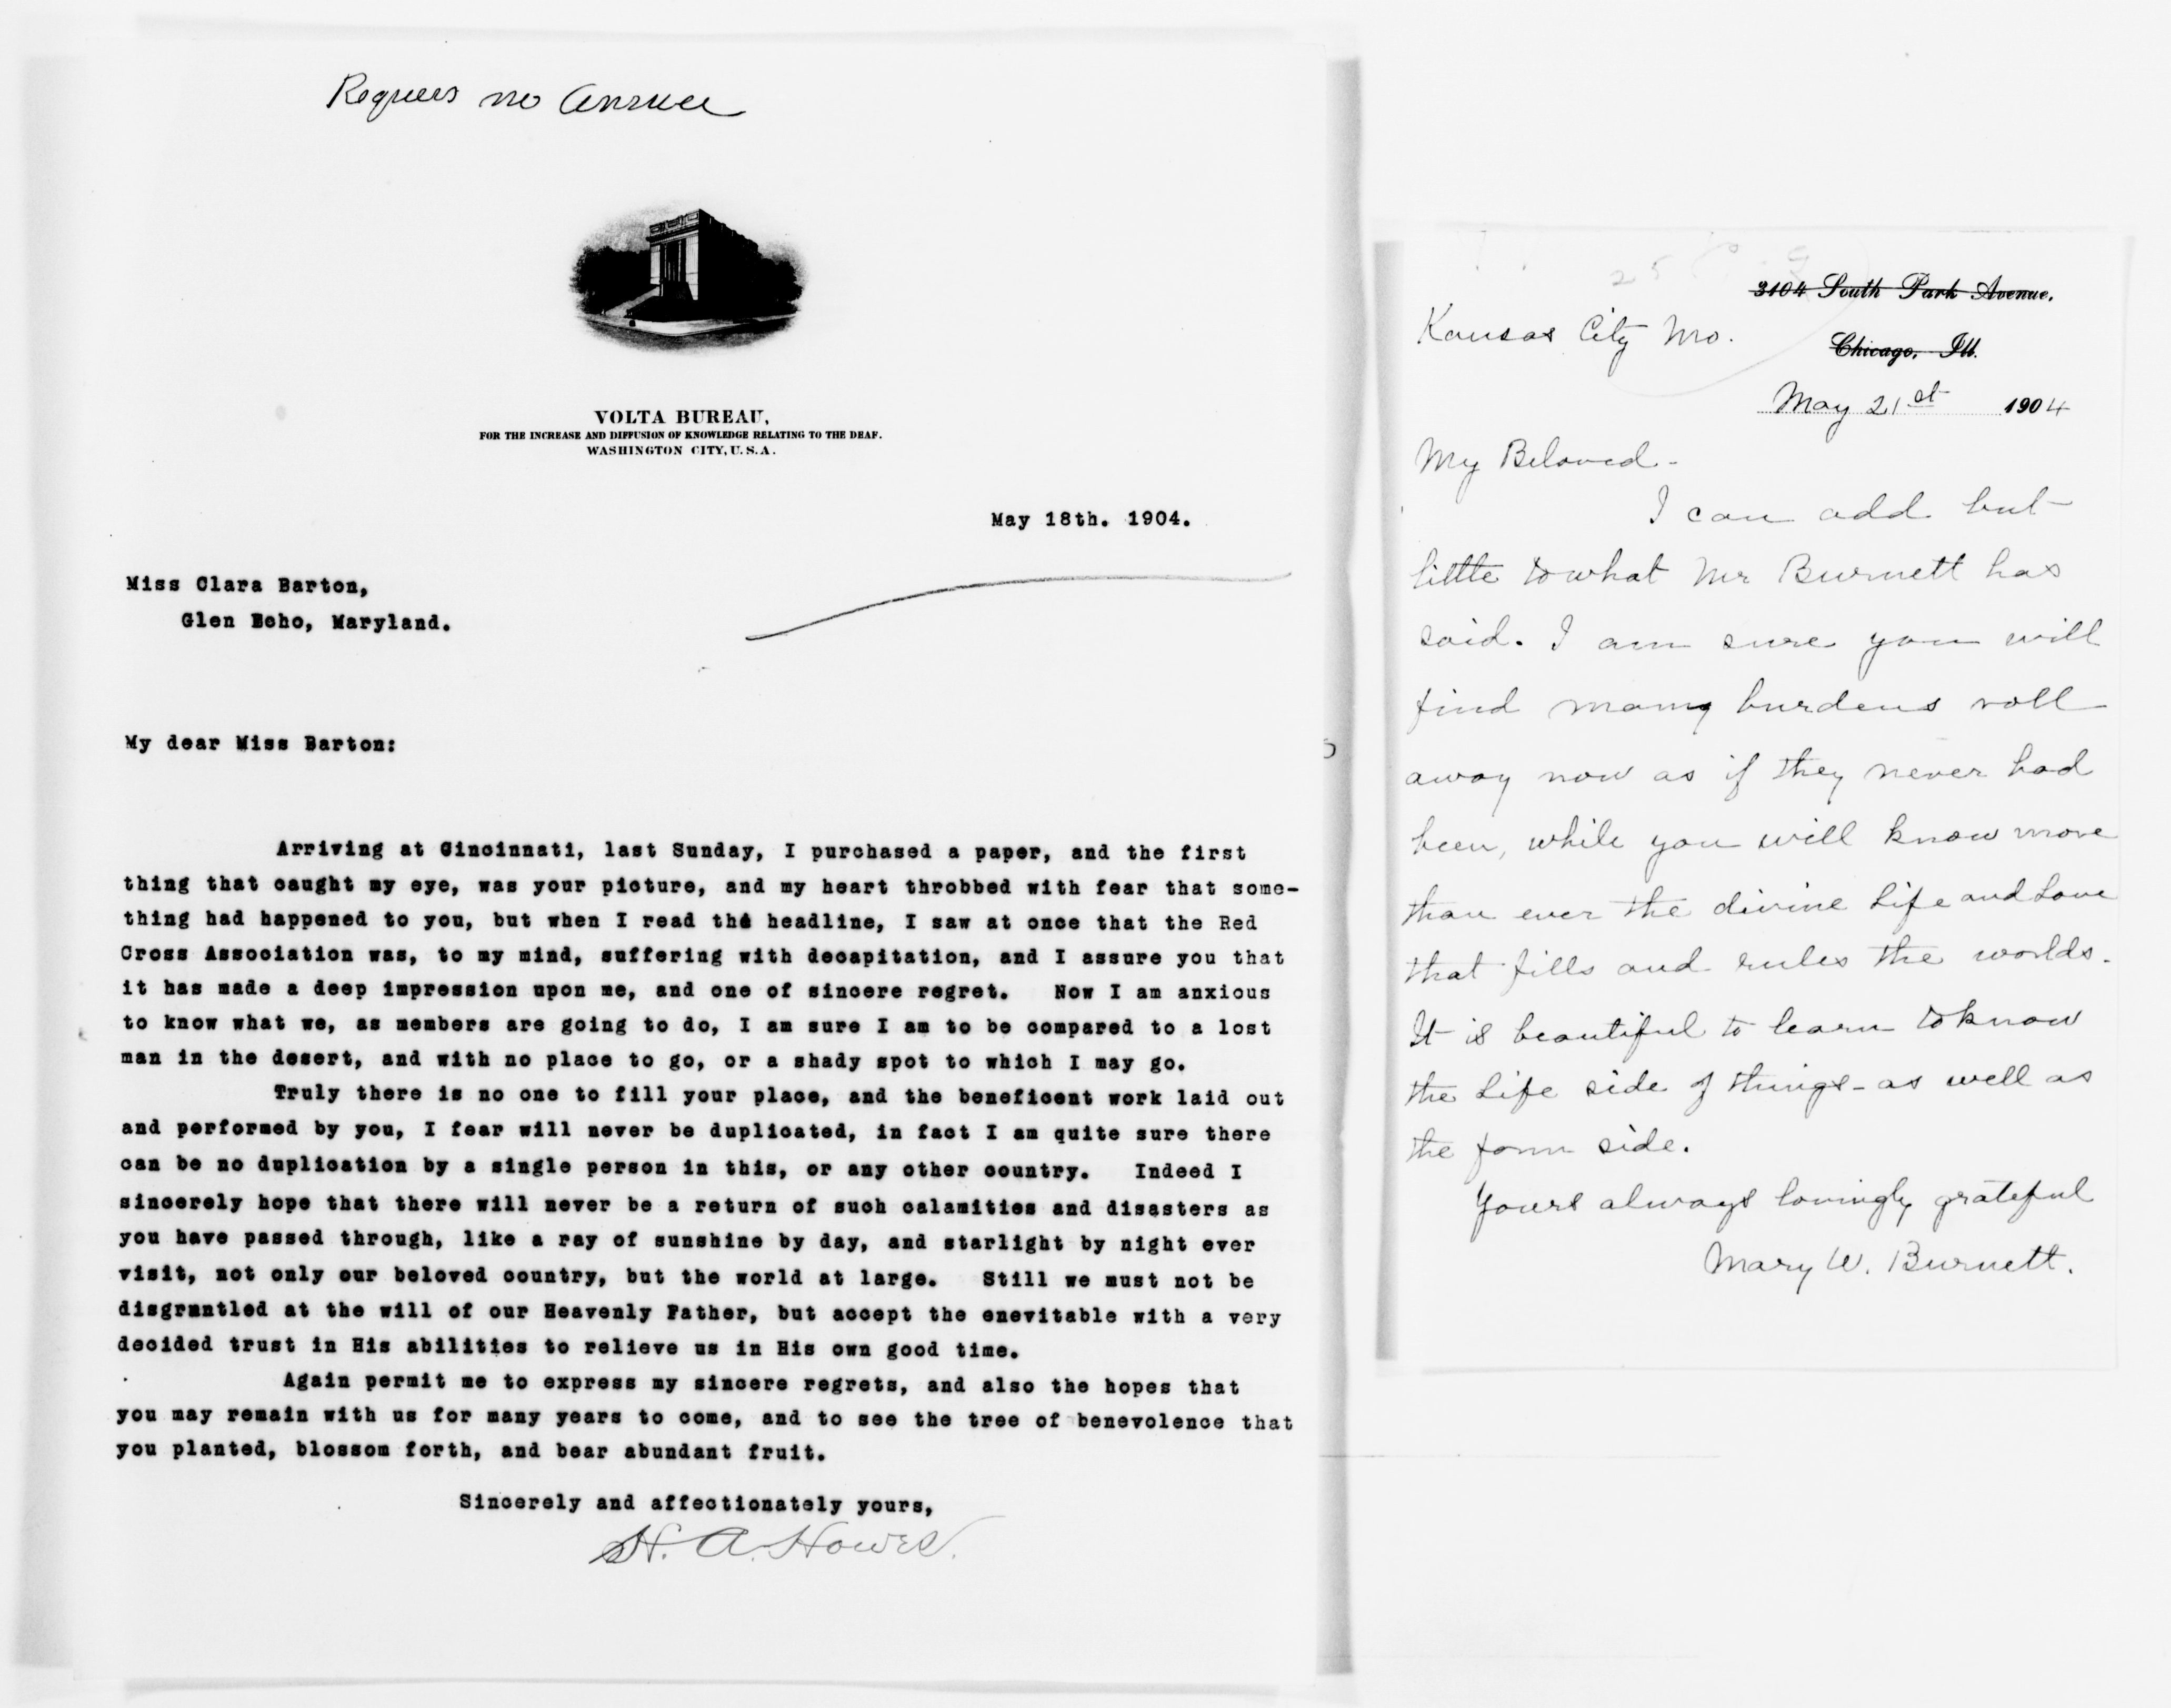 Requires no answer
VOLTA BUREAU,
FOR THE INCREASE AND DIFFUSION OF KNOWLEDGE RELATING TO THE DEAF.
WASHINGTON CITY, U.S.A.
May 18th. 1904.
Miss Clara Barton,
Glen Echo, Maryland.
My dear Miss Barton:
Arriving at Cincinnati, last Sunday, I purchased a paper, and the first
thing that caught my eye, was your picture, and my heart throbbed with fear that some-
thing had happened to you, but when I read the headline, I saw at once that the Red
Cross Association was, to my mind, suffering with decapitation, and I assure you that
it has made a deep impression upon me, and one of sincere regret. Now I am anxious
to know what we, as members are going to do, I am sure I am to be compared to a lost
man in the desert, and with no place to go, or a shady spot to which I may go.
Truly there is no one to fill your place, and the beneficent work laid out
and performed by you, I fear will never be duplicated, in fact I am quite sure there
can be no duplication by a single person in this, or any other country. Indeed I
sincerely hope that there will never be a return of such calamities and disasters as
you have passed through, like a ray of sunshine by day, and starlight by night ever
visit, not only our beloved country, but the world at large. Still we must not be
disgruntled at the will of our Heavenly Father, but accept the enevitable with a very
decided trust in His abilities to relieve us in His own good time.
Again permit me to express my sincere regrets, and also the hopes that
you may remain with us for many years to come, and to see the tree of benevolence that
you planted, blossom forth, and bear abundant fruit.
Sincerely and affectionately yours,
H. A. Howel.
3104 South Park Avenue.
Kansas City Mo.
Chicago, Ill.
May 21st 1904
My Beloved-
I can add but
little to what Mr Burnett has
said. I am sure you will
find many burdens roll
away now as if they never had
been, while you will know more
than ever the divine Life and Love
that fills and rules the worlds.
It is beautiful to learn to know
the Life side of things - as well as
the form side.
Yours always lovingly grateful
Mary W. Burnett.